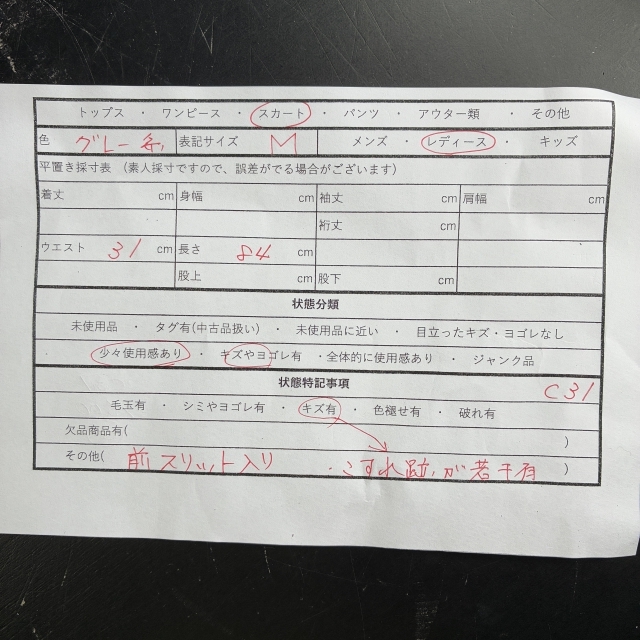 トップス ・ ワンピース ・ スカート ・ パンツ ・ アウター類 ・ その他
色 グレー系 表記サイズ M メンズ ・ レディース ・ キッズ
平置き採寸表 (素人採寸ですので、誤差がでる場合がございます)
着丈 cm 身幅 cm 袖丈 cm 肩幅 cm
裄丈 cm
ウエスト 31 cm 長さ 84 cm
股上 cm 股下 cm
状態分類
未使用品 ・ タグ有(中古品扱い) ・ 未使用品に近い ・ 目立ったキズ・ヨゴレなし
少々使用感あり ・ キズやヨゴレ有 ・全体的に使用感あり ・ ジャンク品
状態特記事項
C31
毛玉有 ・ シミやヨゴレ有 ・ キズ有 ・ 色褪せ有 ・ 破れ有
欠品商品有( )
その他( 前スリット入り ・こすれ跡が若干有 )